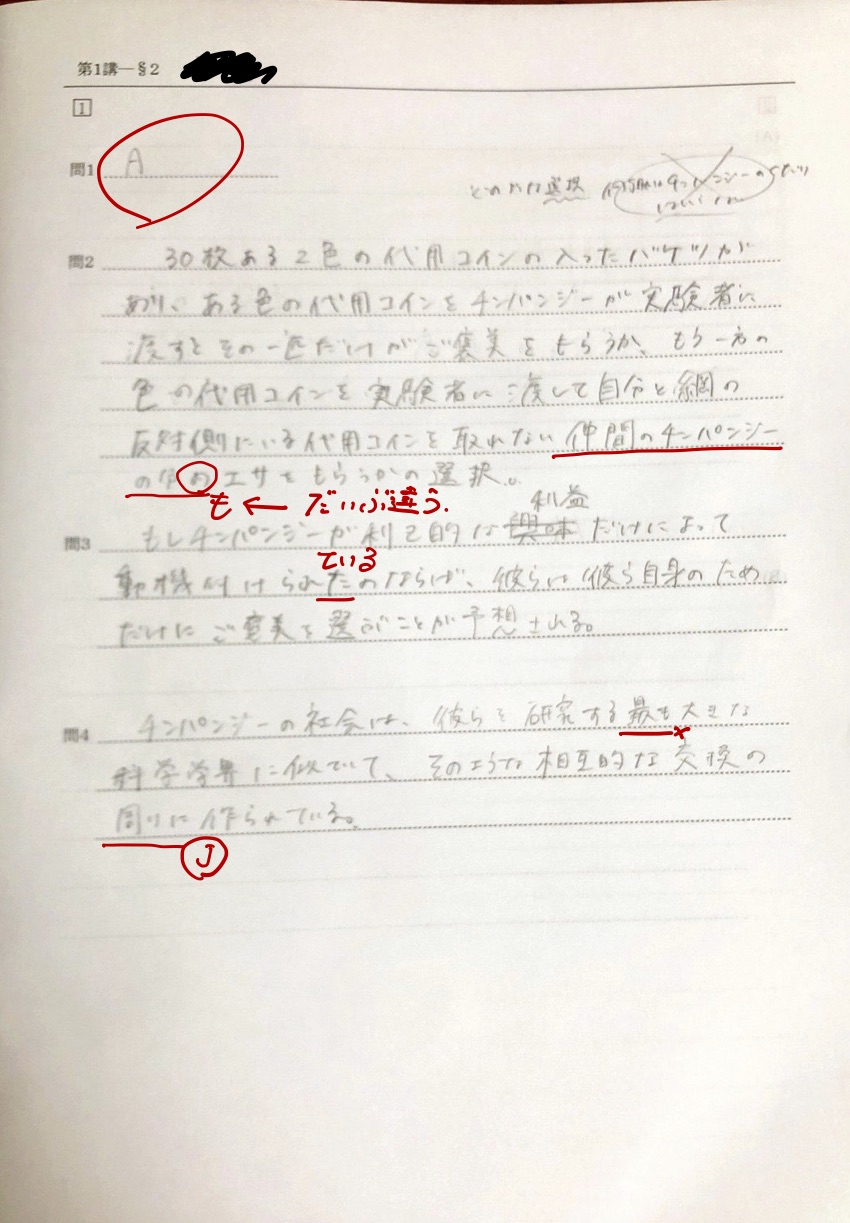 第1講—§2
1
問1 A
どのような選択
問2 30枚ある2色の代用コインの入ったバケツが
あり、ある色の代用コインをチンパンジーが実験者に
渡すとその一匹だけがご褒美をもらうか、もう一方の
色の代用コインを実験者に渡して自分と網の
反対側にいる代用コインを取れない仲間のチンパンジー
のエサをもらうかの選択。
も ← だいぶ違う.
利益
問3 もしチンパンジーが利己的な興味だけによって
ている
動機付けられたのならば、彼らは彼ら自身のため
だけにご褒美を選ぶことが予想される。
問4 チンパンジーの社会は、彼らを研究する最も大きな
x
科学学界に似ていて、そのような相互的な交換の
周りに作られている。
J